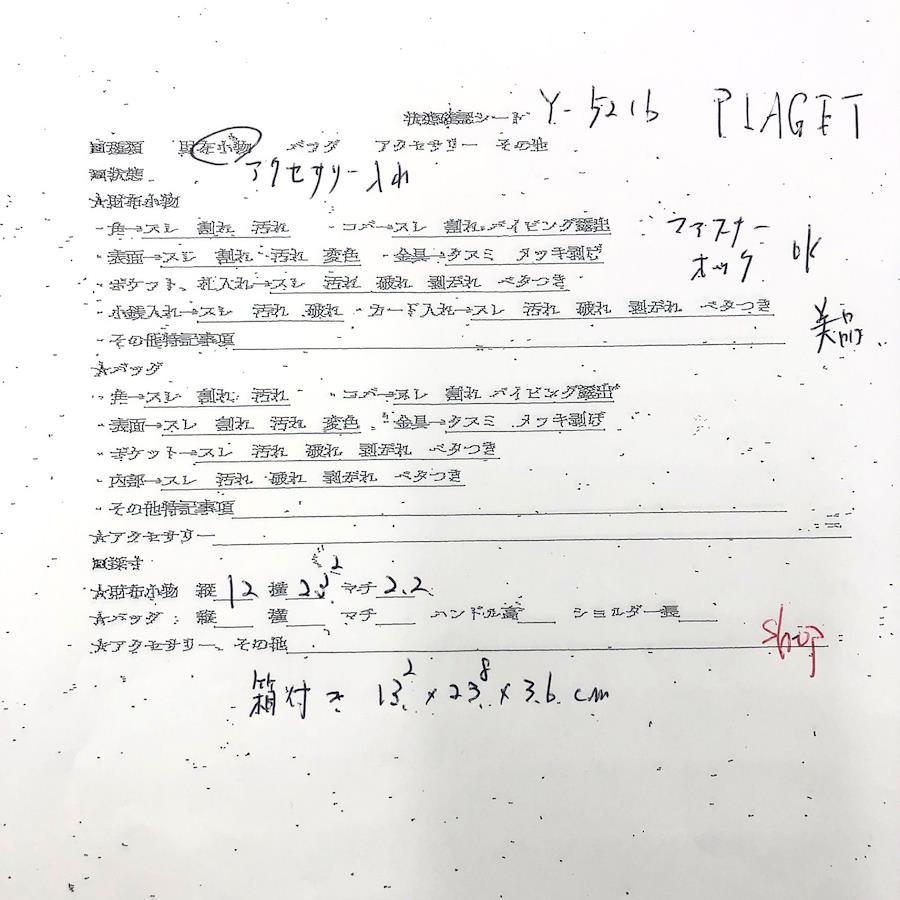 状態確認シート Y-5216 PIAGET
■種類 財布小物 バッグ アクセサリー その他
■状態 アクセサリー入れ
★財布小物
・角→スレ 割れ 汚れ ・コバ→スレ 割れ パイピング露出 ファスナー
・表面→スレ 割れ 汚れ 変色 ・金具→クスミ メッキ剥げ ホック OK
・ポケット、札入れ→スレ 汚れ 破れ 剥がれ ベタつき
・小銭入れ→スレ 汚れ 破れ ・カード入れ→スレ 汚れ 破れ 剥がれ ベタつき 美品
・その他特記事項
★バッグ
・角→スレ 割れ 汚れ ・コバ→スレ 割れ パイピング露出
・表面→スレ 割れ 汚れ 変色 ・金具→クスミ メッキ剥げ
・ポケット→スレ 汚れ 破れ 剥がれ ベタつき
・内部→スレ 汚れ 破れ 剥がれ ベタつき
・その他特記事項
★アクセサリー
■採寸
★財布小物 縦 12 横 マチ 2.2
★バッグ: 縦 横 マチ ハンドル高 ショルダー長
★アクセサリー、その他 shop
箱付き 13.2 × 23.8 × 3.6 cm